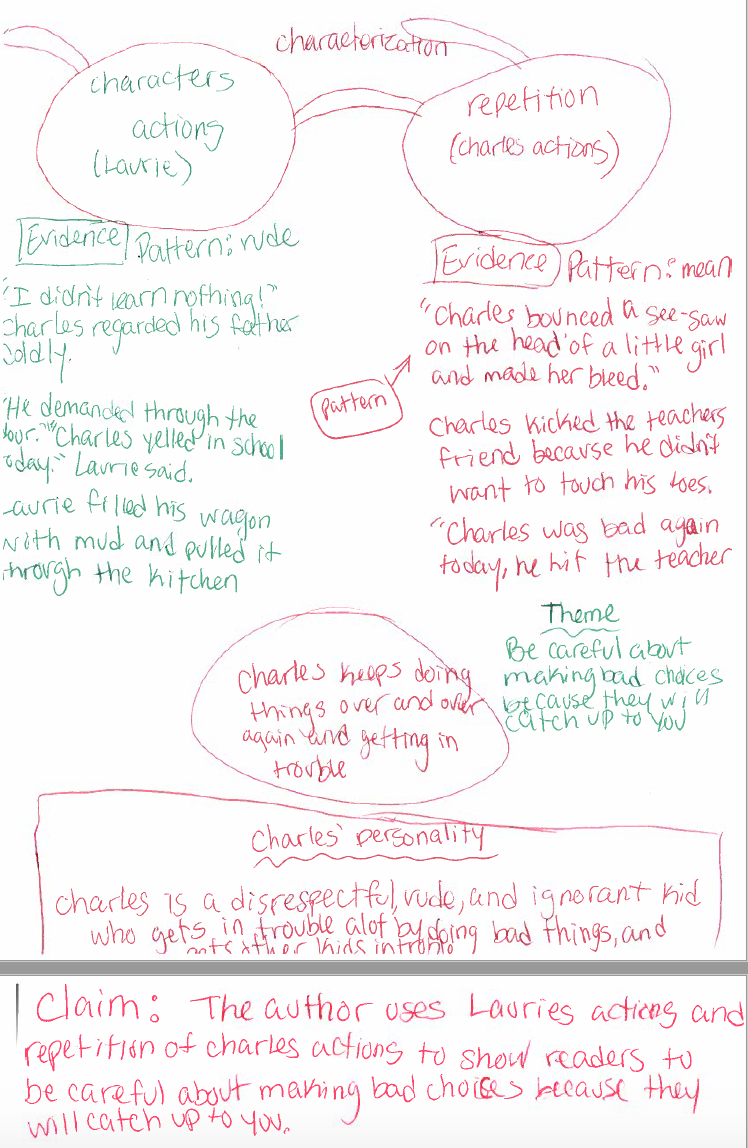 characterization
characters
actions
(Laurie)
repetition
(charles actions)
Evidence Pattern: rude
"I didn't learn nothing!"
charles regarded his father
coldly.
"He demanded through the
"Charles yelled in school
today." Laurie said.
Laurie filled his wagon
with mud and pulled it
through the kitchen
Evidence Pattern: mean
"Charles bounced a see-saw
on the head of a little girl
and made her bleed."
pattern
Charles kicked the teachers
friend because he didn't
want to touch his toes.
"Charles was bad again
today, he hit the teacher
Theme
Be careful about
making bad choices
because they will
catch up to you
Charles keeps doing
things over and over
again and getting in
trouble
Charles' personality
charles is a disrespectful, rude, and ignorant kid
who gets in trouble alot by doing bad things, and
gets other kids in trouble
Claim: The author uses Lauries actions and
repetition of charles actions to show readers to
be careful about making bad choices because they
will catch up to you.